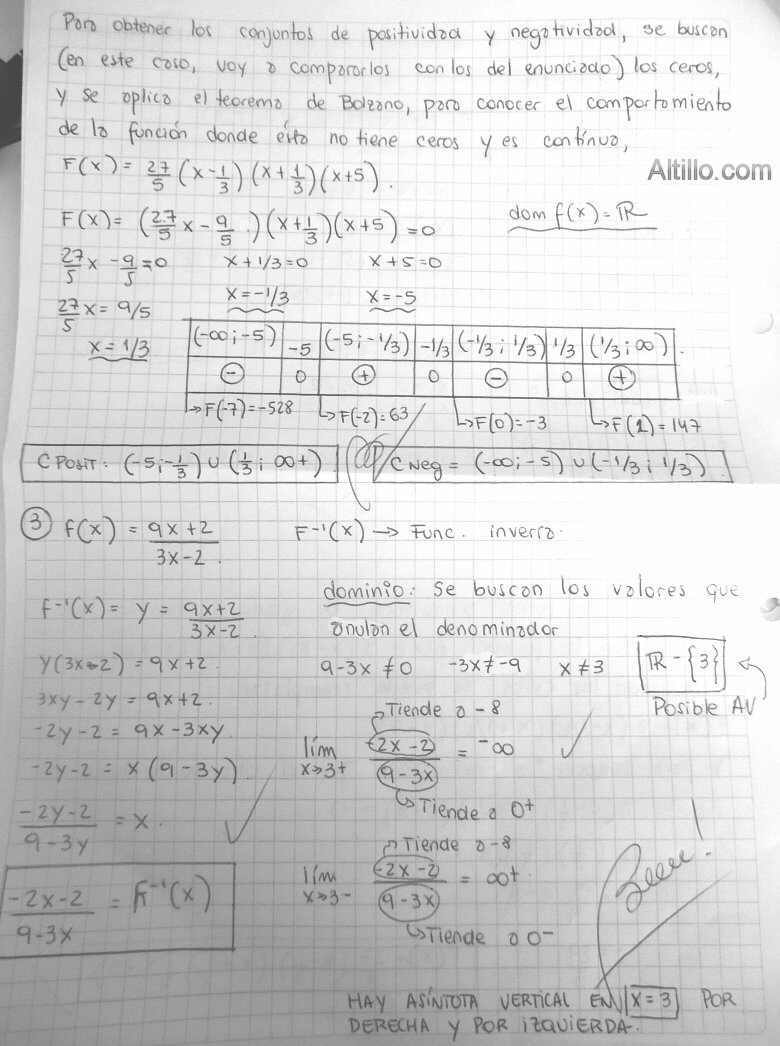 Para obtener los conjuntos de positividad y negatividad, se buscan
(en este caso, voy a compararlos con los del enunciado) los ceros,
y se aplica el teorema de Bolzano, para conocer el comportamiento
de la función donde ésta no tiene ceros y es contínua,
Altillo.com
F(x) = 27/5 (x - 1/3) (x + 1/3) (x+5).
F(x) = (27/5 x - 9/5) (x + 1/3) (x+5) = 0 dom f(x) = ℝ
27/5 x - 9/5 = 0 x + 1/3 = 0 x + 5 = 0
27/5 x = 9/5 x = -1/3 x = -5
x = 1/3
(-∞; -5) -5 (-5; -1/3) -1/3 (-1/3; 1/3) 1/3 (1/3; ∞)
- 0 + 0 - 0 +
→F(-7) = -528 →F(-2) = 63 →F(0) = -3 →F(2) = 147
C POSIT: (-5; -1/3) ∪ (1/3; ∞+) C Neg = (-∞; -5) ∪ (-1/3; 1/3)
③ f(x) = 9x+2 / 3x-2 F⁻¹(x) → Func. inversa.
dominio: Se buscan los valores que
anulan el denominador
f⁻¹(x) = y = 9x+2 / 3x-2
y(3x-2) = 9x+2. 9-3x ≠ 0 -3x ≠ -9 x ≠ 3 ℝ - {3}
Posible AV
3xy - 2y = 9x+2.
-2y - 2 = 9x - 3xy.
-2y - 2 = x (9 - 3y).
-2y - 2 / 9 - 3y = x.
-2x - 2 / 9 - 3x = F⁻¹(x)
Tiende a -8
lím x→3+ -2x - 2 / 9 - 3x = -∞
Tiende a 0+
Tiende a -8
lím x→3- -2x - 2 / 9 - 3x = ∞+
Tiende a 0-
HAY ASÍNTOTA VERTICAL EN x = 3 POR
DERECHA Y POR IZQUIERDA.